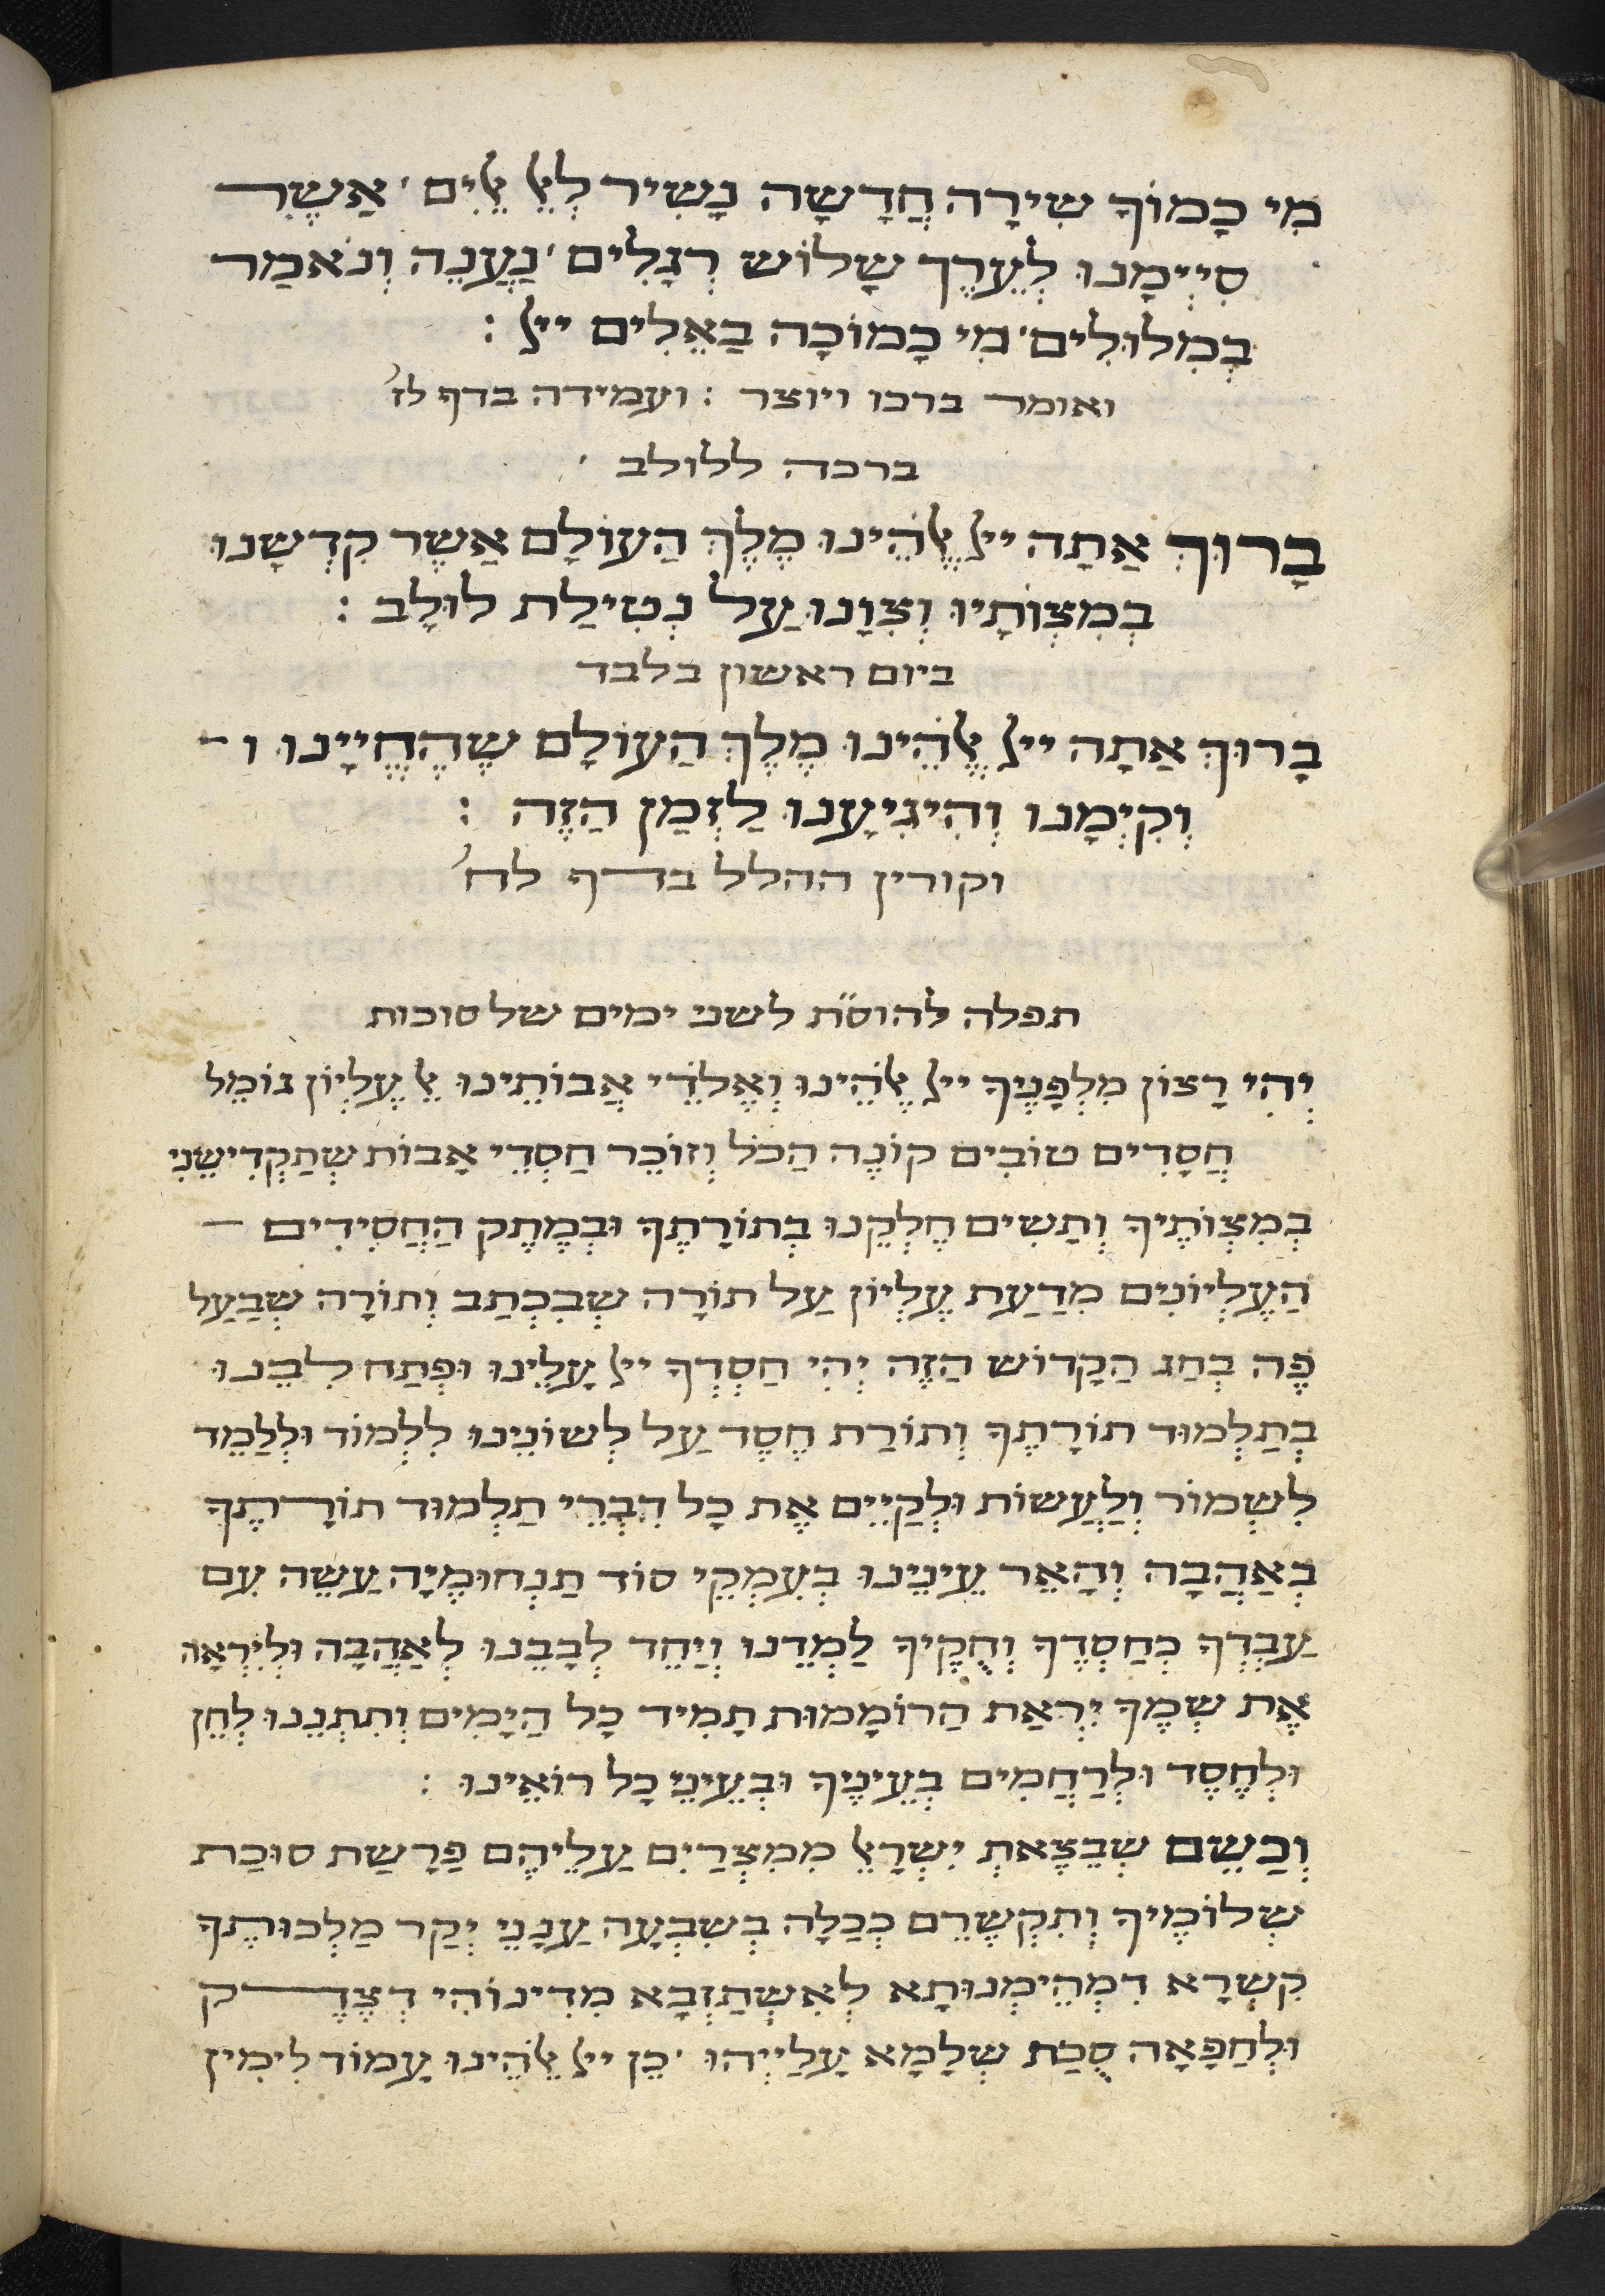 מִי כָמוֹךָ שִׁירָה חֲדָשָׁה נָשִׁיר לְאֵל אֵלִים ׳ אַשֶׁר
סִיְימָנוּ לְעֵרֶך שָלוֹש רְגָלִים ׳ נַעֲנֵה וְנֹאמַר
בְמִלוּלִים ׳ מִי כָמוֹכָה בַאֵלִים ייל :
ואומר ברכו ויוצר : ועמידה בדף לז׳
ברכה ללולב ׳
בָרוּךְ אַתָה ייל אֱלֹהֵינוּ מֶלֶךְ הַעוֹלָם אַשֶר קִדְשָנוּ
בְמִצְוֹתָיו וְצִוָנוּ עַל נְטִילַת לוּלָב :
ביום ראשון בלבד
בָרוּךְ אַתָה ייל אֱלֹהֵינוּ מֶלֶךְ הַעוֹלָם שֶהֶחֱיָיָנוּ ו-
וְקִיְמָנוּ וְהִיגִיעָנוּ לַזְמַן הַזֶה :
וקורין ההלל בדף לח׳
תפלה להוס״ת לשני ימים של סוכות
יְהִי רָצוֹן מִלְפָנֶיךָ ייל אֱלֹהֵינוּ וְאֶלֹהֵי אֲבוֹתֵינוּ אֵל עֶלְיוֹן גוֹמֵל
חֲסָדִים טוֹבִים קוֹנֶה הַכֹל וְזוֹכֵר חַסְדֵי אָבוֹת שְתַקְדִישֵנִי
בְמִצְוֹתֶיךָ וְתַשִים חֶלְקֵנוּ בְתוֹרָתֶךָ וּבְמֶתֶק הַחֲסִידִים
הַעֶלְיוֹנִים מִדַעַת עֶלְיוֹן עַל תוֹרָה שְבִכְתַב וְתוֹרָה שְבַעַל
פֶה בְחַג הַקָדוֹש הַזֶה יְהִי חַסְדְךָ ייל עָלֵינוּ וּפְתַח לִבֵנוּ
בְתַלְמוּד תוֹרָתֶךָ וְתוֹרַת חֶסֶד עַל לְשוֹנֵינוּ לִלְמוֹד וּלְלַמֵד
לִשְמוֹר וְלַעֲשוֹת וּלְקַיֵים אֶת כָל דִבְרֵי תַלְמוּד תוֹרָתֶךָ
בְאַהֲבָה וְהָאֵר עֵינֵינוּ בְעִמְקֵי סוֹד תַנְחוּמֶיָה עַשֵה עִם
עַבְדְךָ כְחַסְדֶךָ וְחֻקֶיךָ לַמְדֵנוּ וְיַחֵד לְבָבֵנוּ לְאַהֲבָה וּלְיִרְאָה
אֶת שְמֶךָ יִרְאַת הַרוֹמָמוּת תָמִיד כָל הַיָמִים וְתִתְנֵנוּ לְחֵן
וּלְחֶסֶד וּלְרַחֲמִים בְעֵינֶיךָ וּבְעֵינֵי כָל רוֹאֵינוּ :
וְכַשֵם שְבְצֵאתְ יִשְרָאֵל מִמִצְרַיִם עַלֵיהֶם פַרָשַת סוּכַת
שְלוֹמֶיךָ וְתִקְשֶרֵם כְכַלָה בְשִבְעָה עַנָנֵי יְקַר מַלְכוּתֶךָ
קִשְרָא דִמְהֵימְנוּתָא לְאִשְתַזְבָא מִדִינוֹהִי דְצֶדֶק
וּלְחַפָאָה סֻכַת שְלָמָא עָלַיְיהוּ ׳ כֵן ייל אֱלֹהֵינוּ עָמוֹד לִימִין